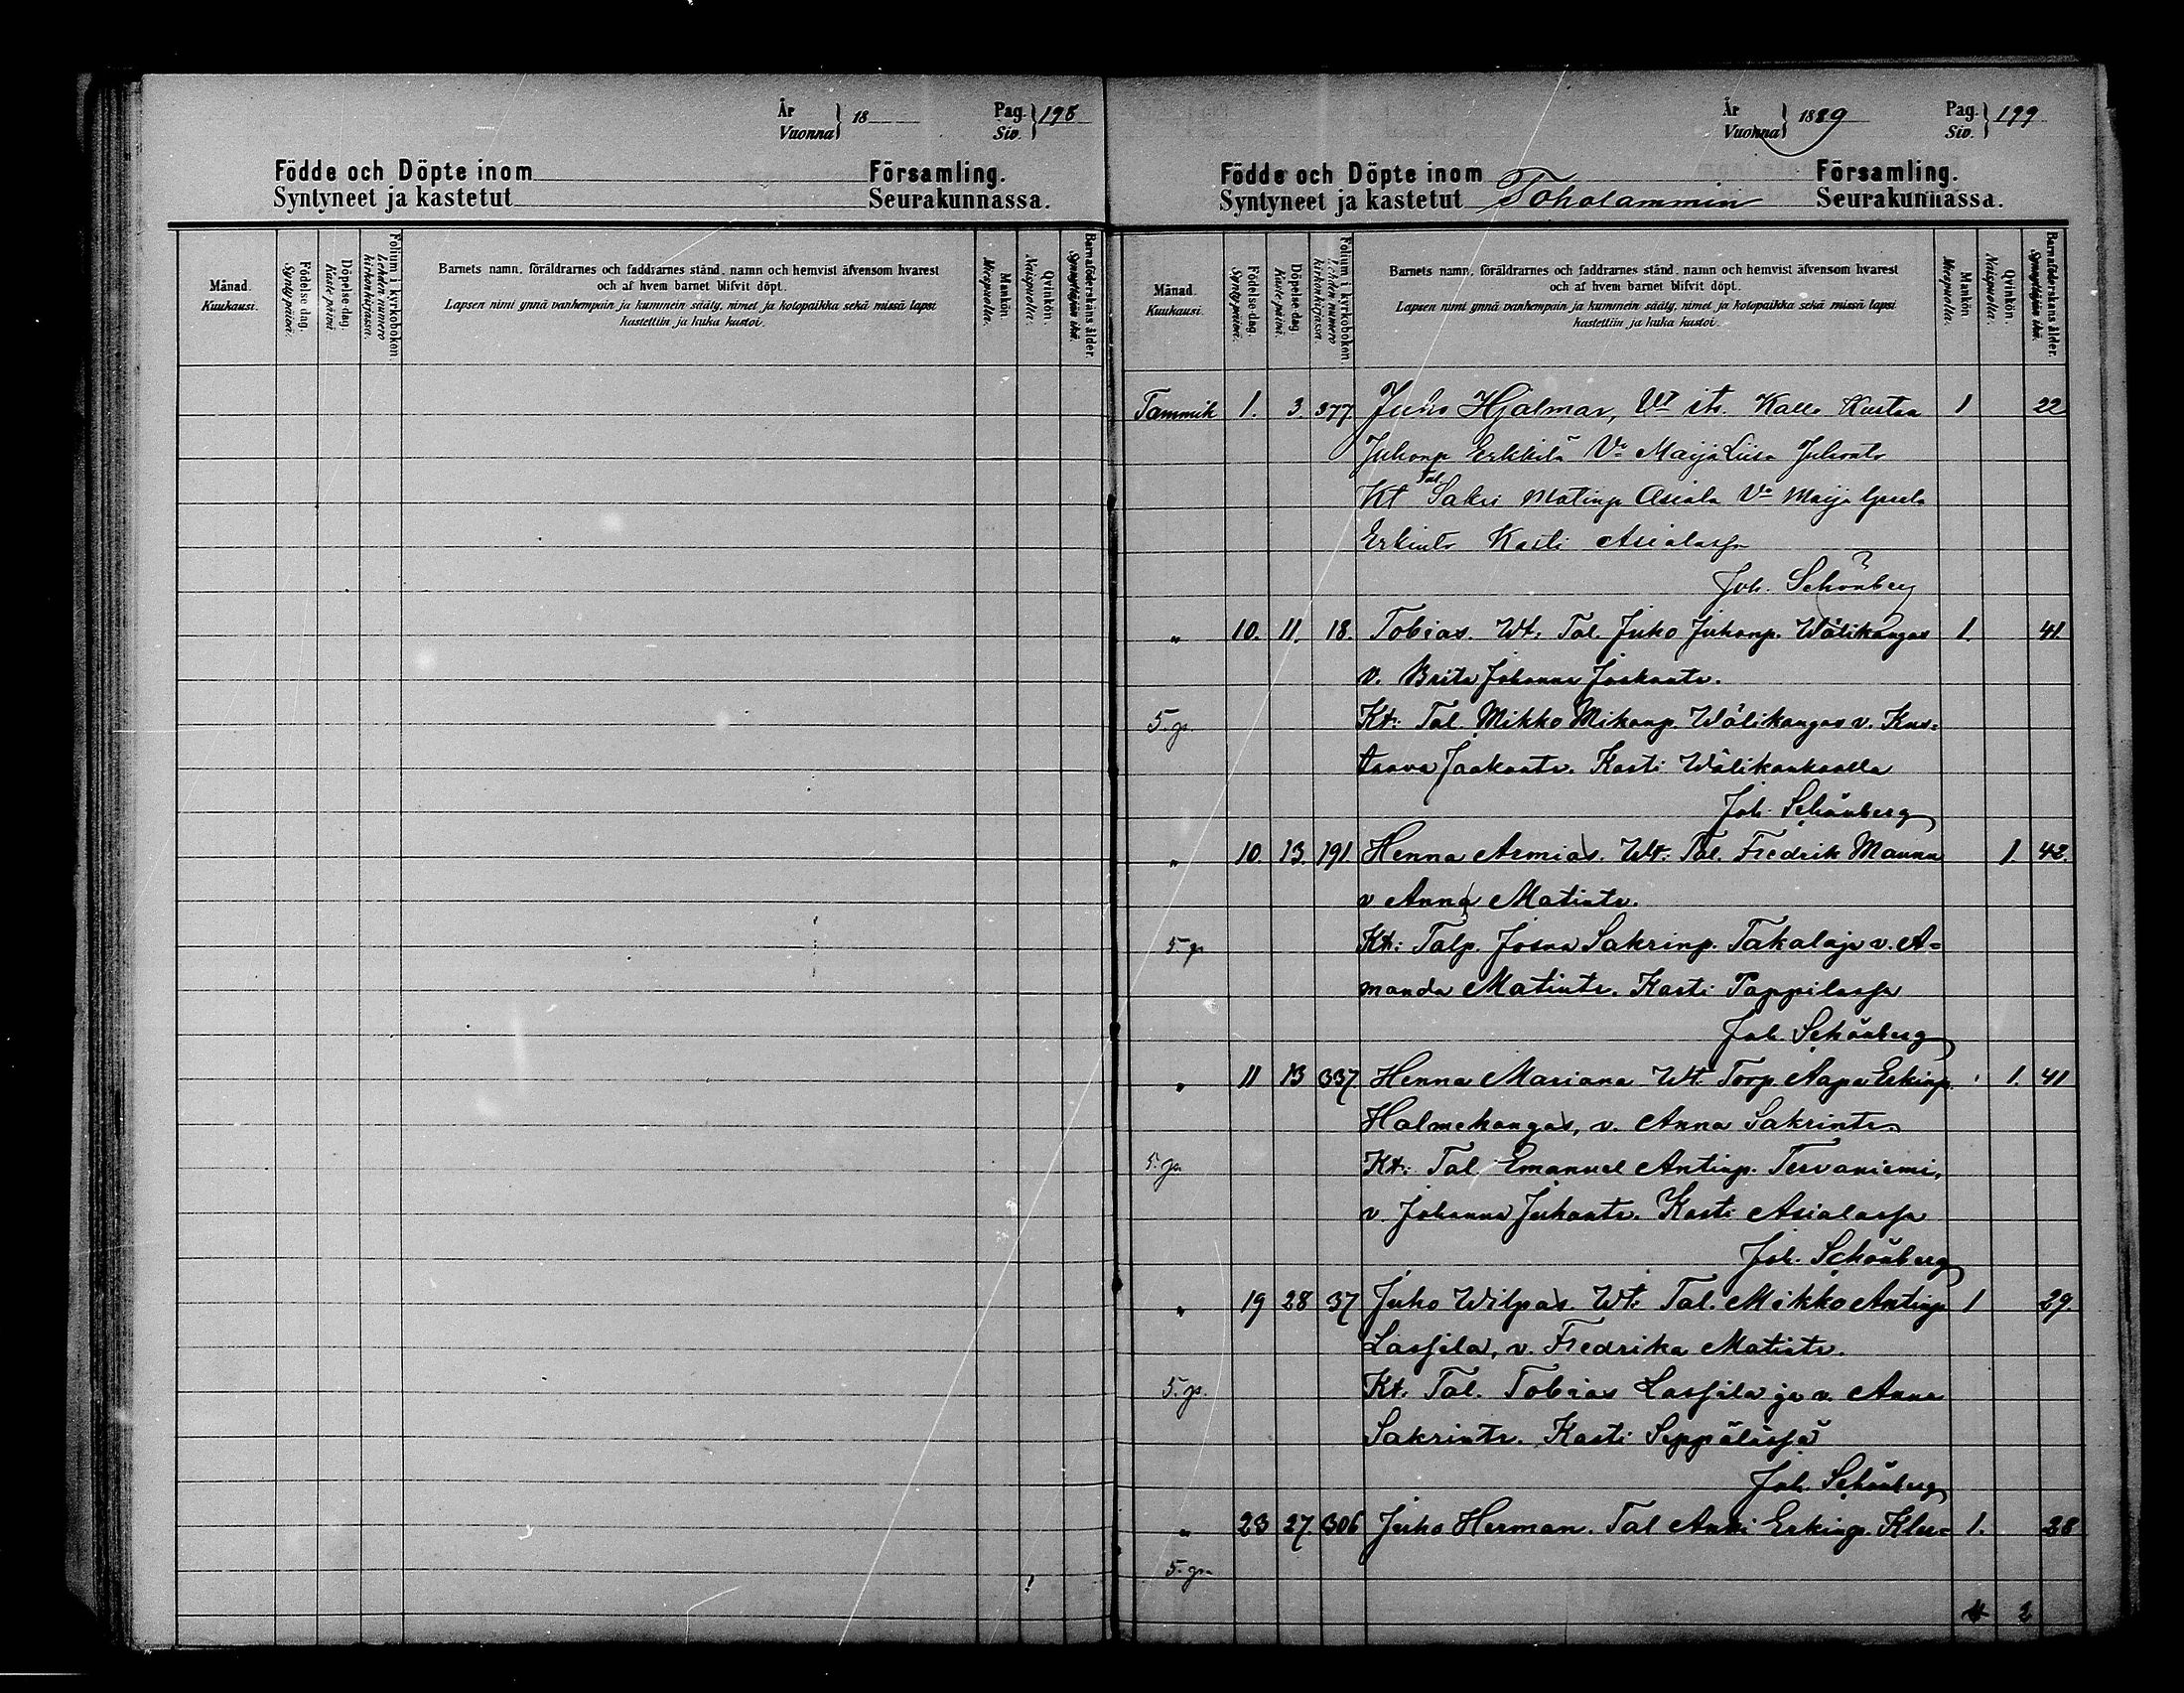 År Vuonna } 18 Pag. Siv. } 198
Födde och Döpte inom Församling.
Syntyneet ja kastetut Seurakunnassa.
Månad. Kuukausi.
Födelse-dag. Syntypäivä.
Döpelse-dag. Kastepäivä.
Folium i kyrkoboken. Lehden numero kirkonkirjassa.
Barnets namn, föräldrarnes och faddrarnes stånd, namn och hemvist äfvensom hvarest
och af hvem barnet blifvit döpt.
Lapsen nimi ynnä vanhempain ja kummein sääty, nimet ja kotopaikka sekä missä lapsi
kastettiin ja kuka kastoi.
Mankön. Miespuolia.
Qvinkön. Naispuolia.
Barnaföderskans ålder. Synnyttäjän ikä.
År Vuonna } 1889 Pag. Siv. } 199
Födde och Döpte inom Församling.
Syntyneet ja kastetut Toholammin Seurakunnassa.
Månad. Kuukausi.
Födelse-dag. Syntypäivä.
Döpelse-dag. Kastepäivä.
Folium i kyrkoboken. Lehden numero kirkonkirjassa.
Barnets namn, föräldrarnes och faddrarnes stånd, namn och hemvist äfvensom hvarest
och af hvem barnet blifvit döpt.
Lapsen nimi ynnä vanhempain ja kummein sääty, nimet ja kotopaikka sekä missä lapsi
kastettiin ja kuka kastoi.
Mankön. Miespuolia.
Qvinkön. Naispuolia.
Barnaföderskans ålder. Synnyttäjän ikä.
Tammik 1. 3. 377. Juho Hjalmar, Vt its. Kalle Kustaa 1 22
Juhonp Erkkilä Vo Maija Liisa Juhontr
Kt Tal Sakri Matinp Asiala Vo Maija
Erkintr Kasti Asialassa
Joh. Schönberg
" 10. 11. 18. Tobias. Wt: Tal. Juho Juhonp. Wälikangas 1. 41.
v. Brita Johanna Jaakontr.
5. p. Kt: Tal. Mikko Mikonp. Wälikangas v. Kus=
taava Jaakontr. Kasti Wälikankaalla
Joh. Schönberg
" 10. 13. 191 Henna Armida. Wt: Tal. Fredrik Maunu 1 42.
v Anna Matintr.
5 p Kt: Talp. Josua Sakrinp. Takaloja v. A=
manda Matintr. Kasti Pappilassa
Joh. Schönberg
" 11 13 337 Henna Mariana Wt. Torp. Aapa Erkinp. 1. 41
Halmekangas, v. Anna Sakrintr.
5. p. Kt: Tal. Emanuel Antinp. Tervaniemi,
v. Johanna Juhontr. Kasti Asialassa
Joh. Schönberg
" 19 28 37 Juho Wilpas. Wt: Tal. Mikko Antinp 1 29
Lassila, v. Fredrika Matintr.
5. p. Kt. Tal. Tobias Lassila ja v. Anna
Sakrintr. Kasti Seppälässä
Joh. Schönberg
" 23 27. 306 Juho Herman. Tal Antti Erkinp. 1. 28
5. p.
4 2